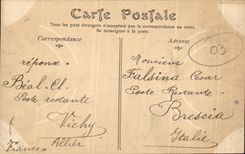 Carte Postale
Tous les pays étrangers n'acceptent pas la correspondance au recto.
Se renseigner à la poste
Correspondance
Adresse
03
réponse
Béal. Cl.
Poste restante
Vichy
Allier
France
Monsieur
Falsina Cesar
Poste Restante
Brescia
Italie